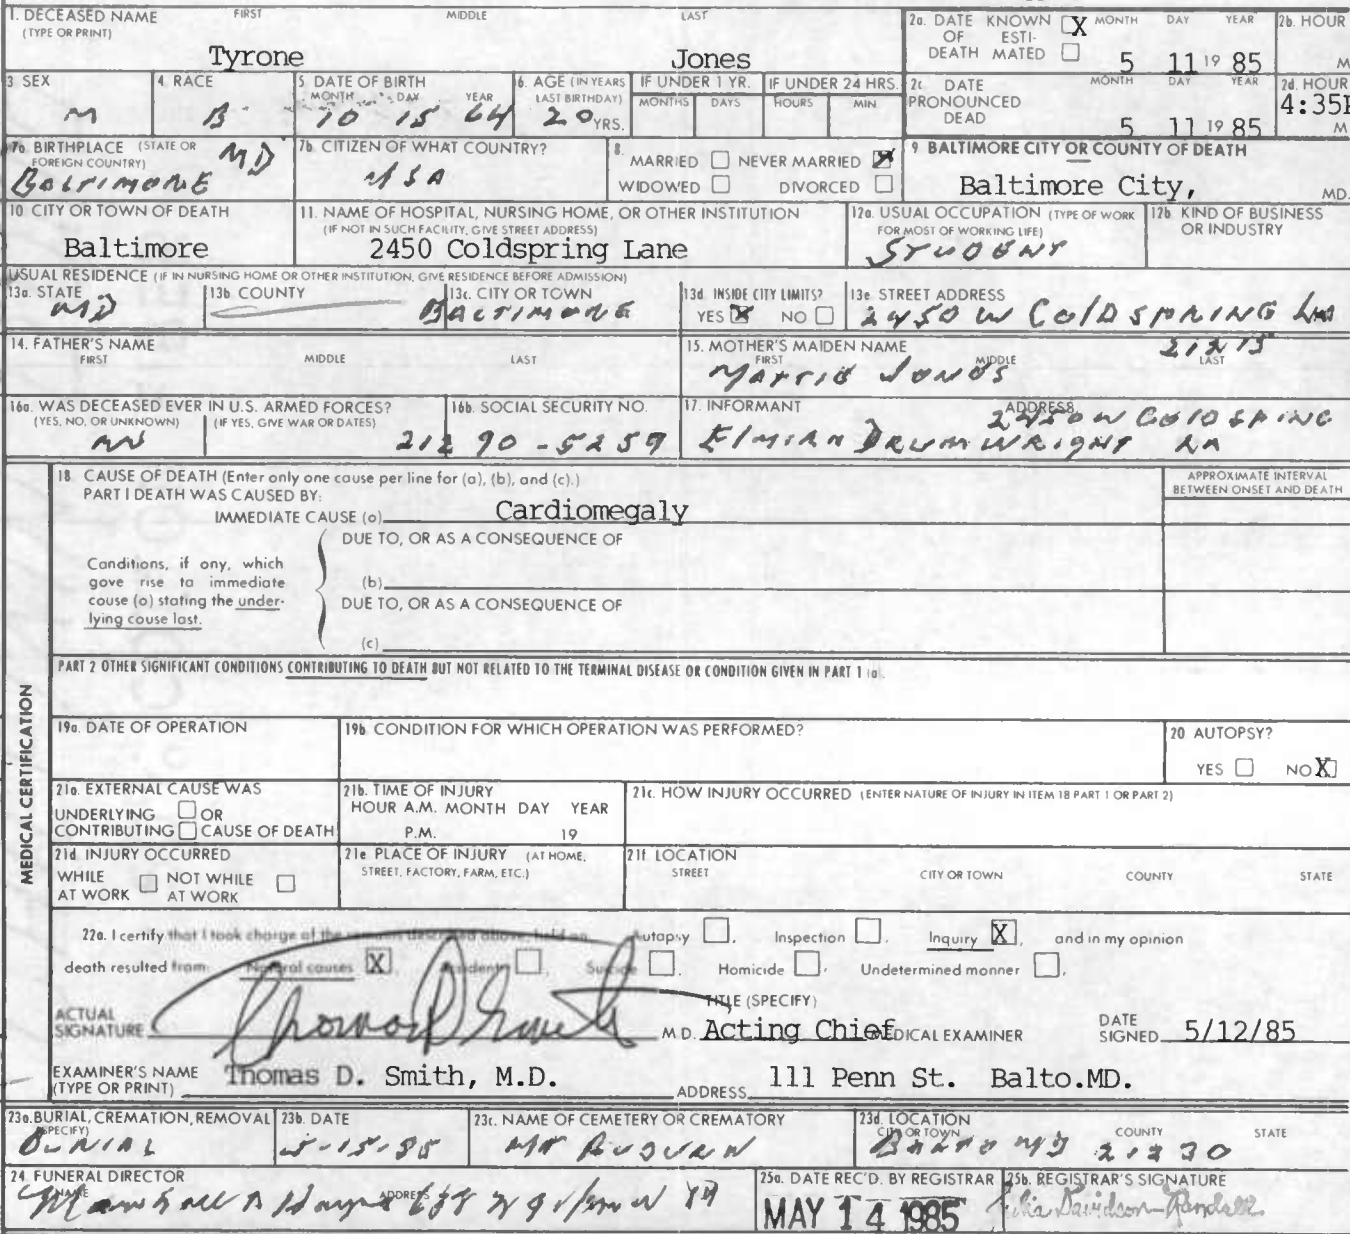 1. DECEASED NAME FIRST MIDDLE LAST
(TYPE OR PRINT)
Tyrone Jones
2a. DATE KNOWN X MONTH DAY YEAR
OF ESTI-
DEATH MATED
5 11 19 85
2b. HOUR
M
3 SEX
M
4. RACE
B
5 DATE OF BIRTH
MONTH DAY YEAR
10 15 64
6. AGE (IN YEARS
LAST BIRTHDAY)
20 YRS.
IF UNDER 1 YR.
MONTHS DAYS
IF UNDER 24 HRS.
HOURS MIN
2c DATE MONTH DAY YEAR
PRONOUNCED
DEAD
5 11 19 85
2d. HOUR
4:35P
M
7a BIRTHPLACE (STATE OR
FOREIGN COUNTRY)
MD
BALTIMORE
7b. CITIZEN OF WHAT COUNTRY?
USA
8.
MARRIED NEVER MARRIED X
WIDOWED DIVORCED
9 BALTIMORE CITY OR COUNTY OF DEATH
Baltimore City, MD.
10. CITY OR TOWN OF DEATH
Baltimore
11. NAME OF HOSPITAL, NURSING HOME, OR OTHER INSTITUTION
(IF NOT IN SUCH FACILITY, GIVE STREET ADDRESS)
2450 Coldspring Lane
12a. USUAL OCCUPATION (TYPE OF WORK
FOR MOST OF WORKING LIFE)
STUDENT
12b. KIND OF BUSINESS
OR INDUSTRY
USUAL RESIDENCE (IF IN NURSING HOME OR OTHER INSTITUTION, GIVE RESIDENCE BEFORE ADMISSION)
13a. STATE
MD
13b. COUNTY
13c. CITY OR TOWN
BALTIMORE
13d. INSIDE CITY LIMITS?
YES X NO
13e. STREET ADDRESS
2450 W COLDSPRING LN
21215
14. FATHER'S NAME
FIRST MIDDLE LAST
15. MOTHER'S MAIDEN NAME
FIRST MIDDLE LAST
MATTIE JONES
16a. WAS DECEASED EVER IN U.S. ARMED FORCES?
(YES, NO, OR UNKNOWN) (IF YES, GIVE WAR OR DATES)
NO
16b. SOCIAL SECURITY NO.
212 90-5257
17. INFORMANT ADDRESS
2450 W COLDSPING
ELMIRA DRUMWRIGHT LN
MEDICAL CERTIFICATION
18. CAUSE OF DEATH (Enter only one cause per line for (a), (b), and (c).)
PART I DEATH WAS CAUSED BY:
APPROXIMATE INTERVAL
BETWEEN ONSET AND DEATH
IMMEDIATE CAUSE (a) Cardiomegaly
DUE TO, OR AS A CONSEQUENCE OF
Conditions, if any, which
gave rise to immediate
cause (a) stating the under-
lying cause last.
(b)
DUE TO, OR AS A CONSEQUENCE OF
(c)
PART 2 OTHER SIGNIFICANT CONDITIONS CONTRIBUTING TO DEATH BUT NOT RELATED TO THE TERMINAL DISEASE OR CONDITION GIVEN IN PART 1 (a).
19a. DATE OF OPERATION
19b. CONDITION FOR WHICH OPERATION WAS PERFORMED?
20 AUTOPSY?
YES NO X
21a. EXTERNAL CAUSE WAS
UNDERLYING OR
CONTRIBUTING CAUSE OF DEATH
21b. TIME OF INJURY
HOUR A.M. MONTH DAY YEAR
P.M. 19
21c. HOW INJURY OCCURRED (ENTER NATURE OF INJURY IN ITEM 18 PART 1 OR PART 2)
21d. INJURY OCCURRED
WHILE NOT WHILE
AT WORK AT WORK
21e PLACE OF INJURY (AT HOME,
STREET, FACTORY, FARM, ETC.)
21f. LOCATION
STREET CITY OR TOWN COUNTY STATE
22a. I certify that I took charge of the remains described above, held an Autopsy , Inspection , Inquiry X , and in my opinion
death resulted from Natural causes X , Accident , Suicide , Homicide , Undetermined manner .
ACTUAL
SIGNATURE Thomas D Smith M.D.
TITLE (SPECIFY)
Acting Chief MEDICAL EXAMINER
DATE
SIGNED 5/12/85
EXAMINER'S NAME
(TYPE OR PRINT) Thomas D. Smith, M.D.
ADDRESS 111 Penn St. Balto.MD.
23a. BURIAL, CREMATION, REMOVAL
(SPECIFY)
BURIAL
23b. DATE
5-15-85
23c. NAME OF CEMETERY OR CREMATORY
MT AUBURN
23d. LOCATION
CITY OR TOWN COUNTY STATE
BALTO MD 21230
24. FUNERAL DIRECTOR
NAME ADDRESS
25a. DATE REC'D. BY REGISTRAR
MAY 14 1985
25b. REGISTRAR'S SIGNATURE
Julia Davidson-Randall